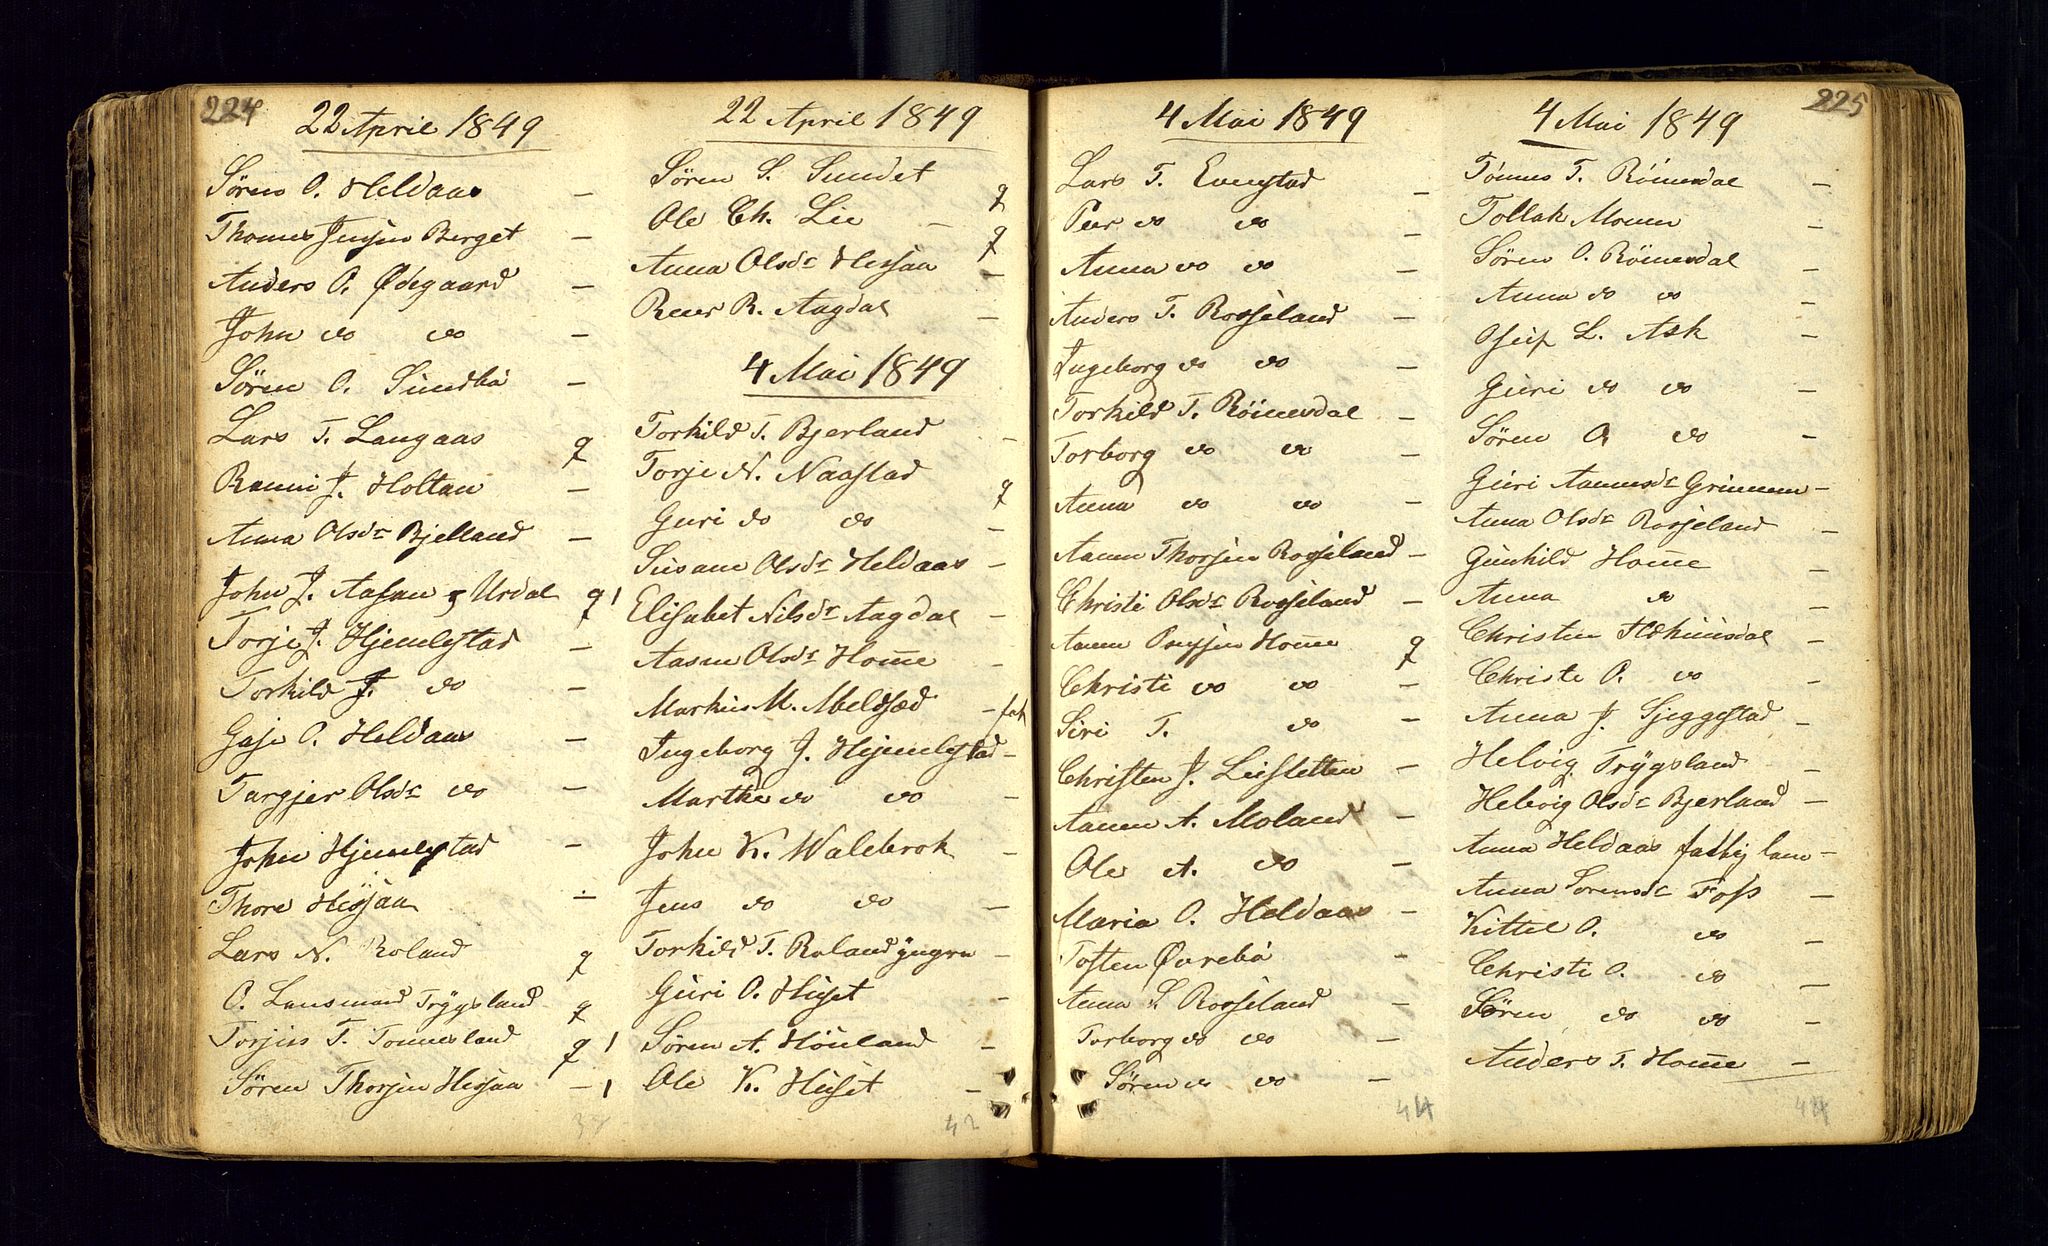 224
22 April 1849
Søren O. Heldaas —
Thomas Jensen Berget —
Anders O. Ødegaard —
John do do —
Søren O. Sundbö —
Lars T. Langaas g
J. Holtan —
Anna Olsdr Bjelland —
John J. Aasan Urdal g 1
Torje J. Hjemlestad —
Torkild J. do —
O. Heldaas —
Targjer Olsdr do —
John Hjemlestad —
Thore Hessaa —
Lars N. Roland g
O. Lensmand Trygsland g
Torjus T. Tonnesland g 1
Søren Thorsen Hessaa — 1
22 April 1849
Søren S. Sundet g
Ole Ch. Lie — g
Anna Olsdr Hessaa —
Reier R. Aagdal —
4 Mai 1849
Torkild T. Bjerland —
Torje N. Naastad g
Guri do do —
Susane Olsdr Heldaas —
Elisabet Nilsdr Aagdal —
Aasne Olsdr Home —
Markus M. —
Ingeborg J. Hjemlestad —
Marthe do do —
John K. Walebrok —
Jens do do —
Torkild T. Roland yngre —
Guri O. Huset —
Søren A. Höiland —
Ole K. Huset —
42
4 Mai 1849
Lars T. Evenstad —
Peer do do —
Anna do do —
Anders T. Rosseland —
Ingeborg do do —
Torkild T. Römesdal —
Torborg do do —
Anna do do —
Aanen Thorsen Rosseland —
Christi Olsdr Rosseland —
Aanen Home g
Christi do do —
Siri T. do —
Christen J. —
Aanen A. Moland —
Ole A. do —
Maria O. Heldaas —
Tosten Øvrebö —
Anna S. Rosseland —
Torborg do do —
Søren do do —
44
225
4 Mai 1849
Tönnes T. Römesdal —
Tollak Moen —
Søren O. Römesdal —
Anna do do —
L. Ask —
Guri do do —
Søren O. do —
Guri Aanensdr —
Anna Olsdr Rosseland —
Gunhild Home —
Anna do —
Christen —
Christi O. do —
Anna J. Sjeggestad —
Helvig Trygsland —
Helvig Olsdr Bjerland —
Anna Heldaas —
Anna Sorensdr Foss —
Kittel O. do —
Christi O. do —
Søren do do —
Anders T. Home —
44